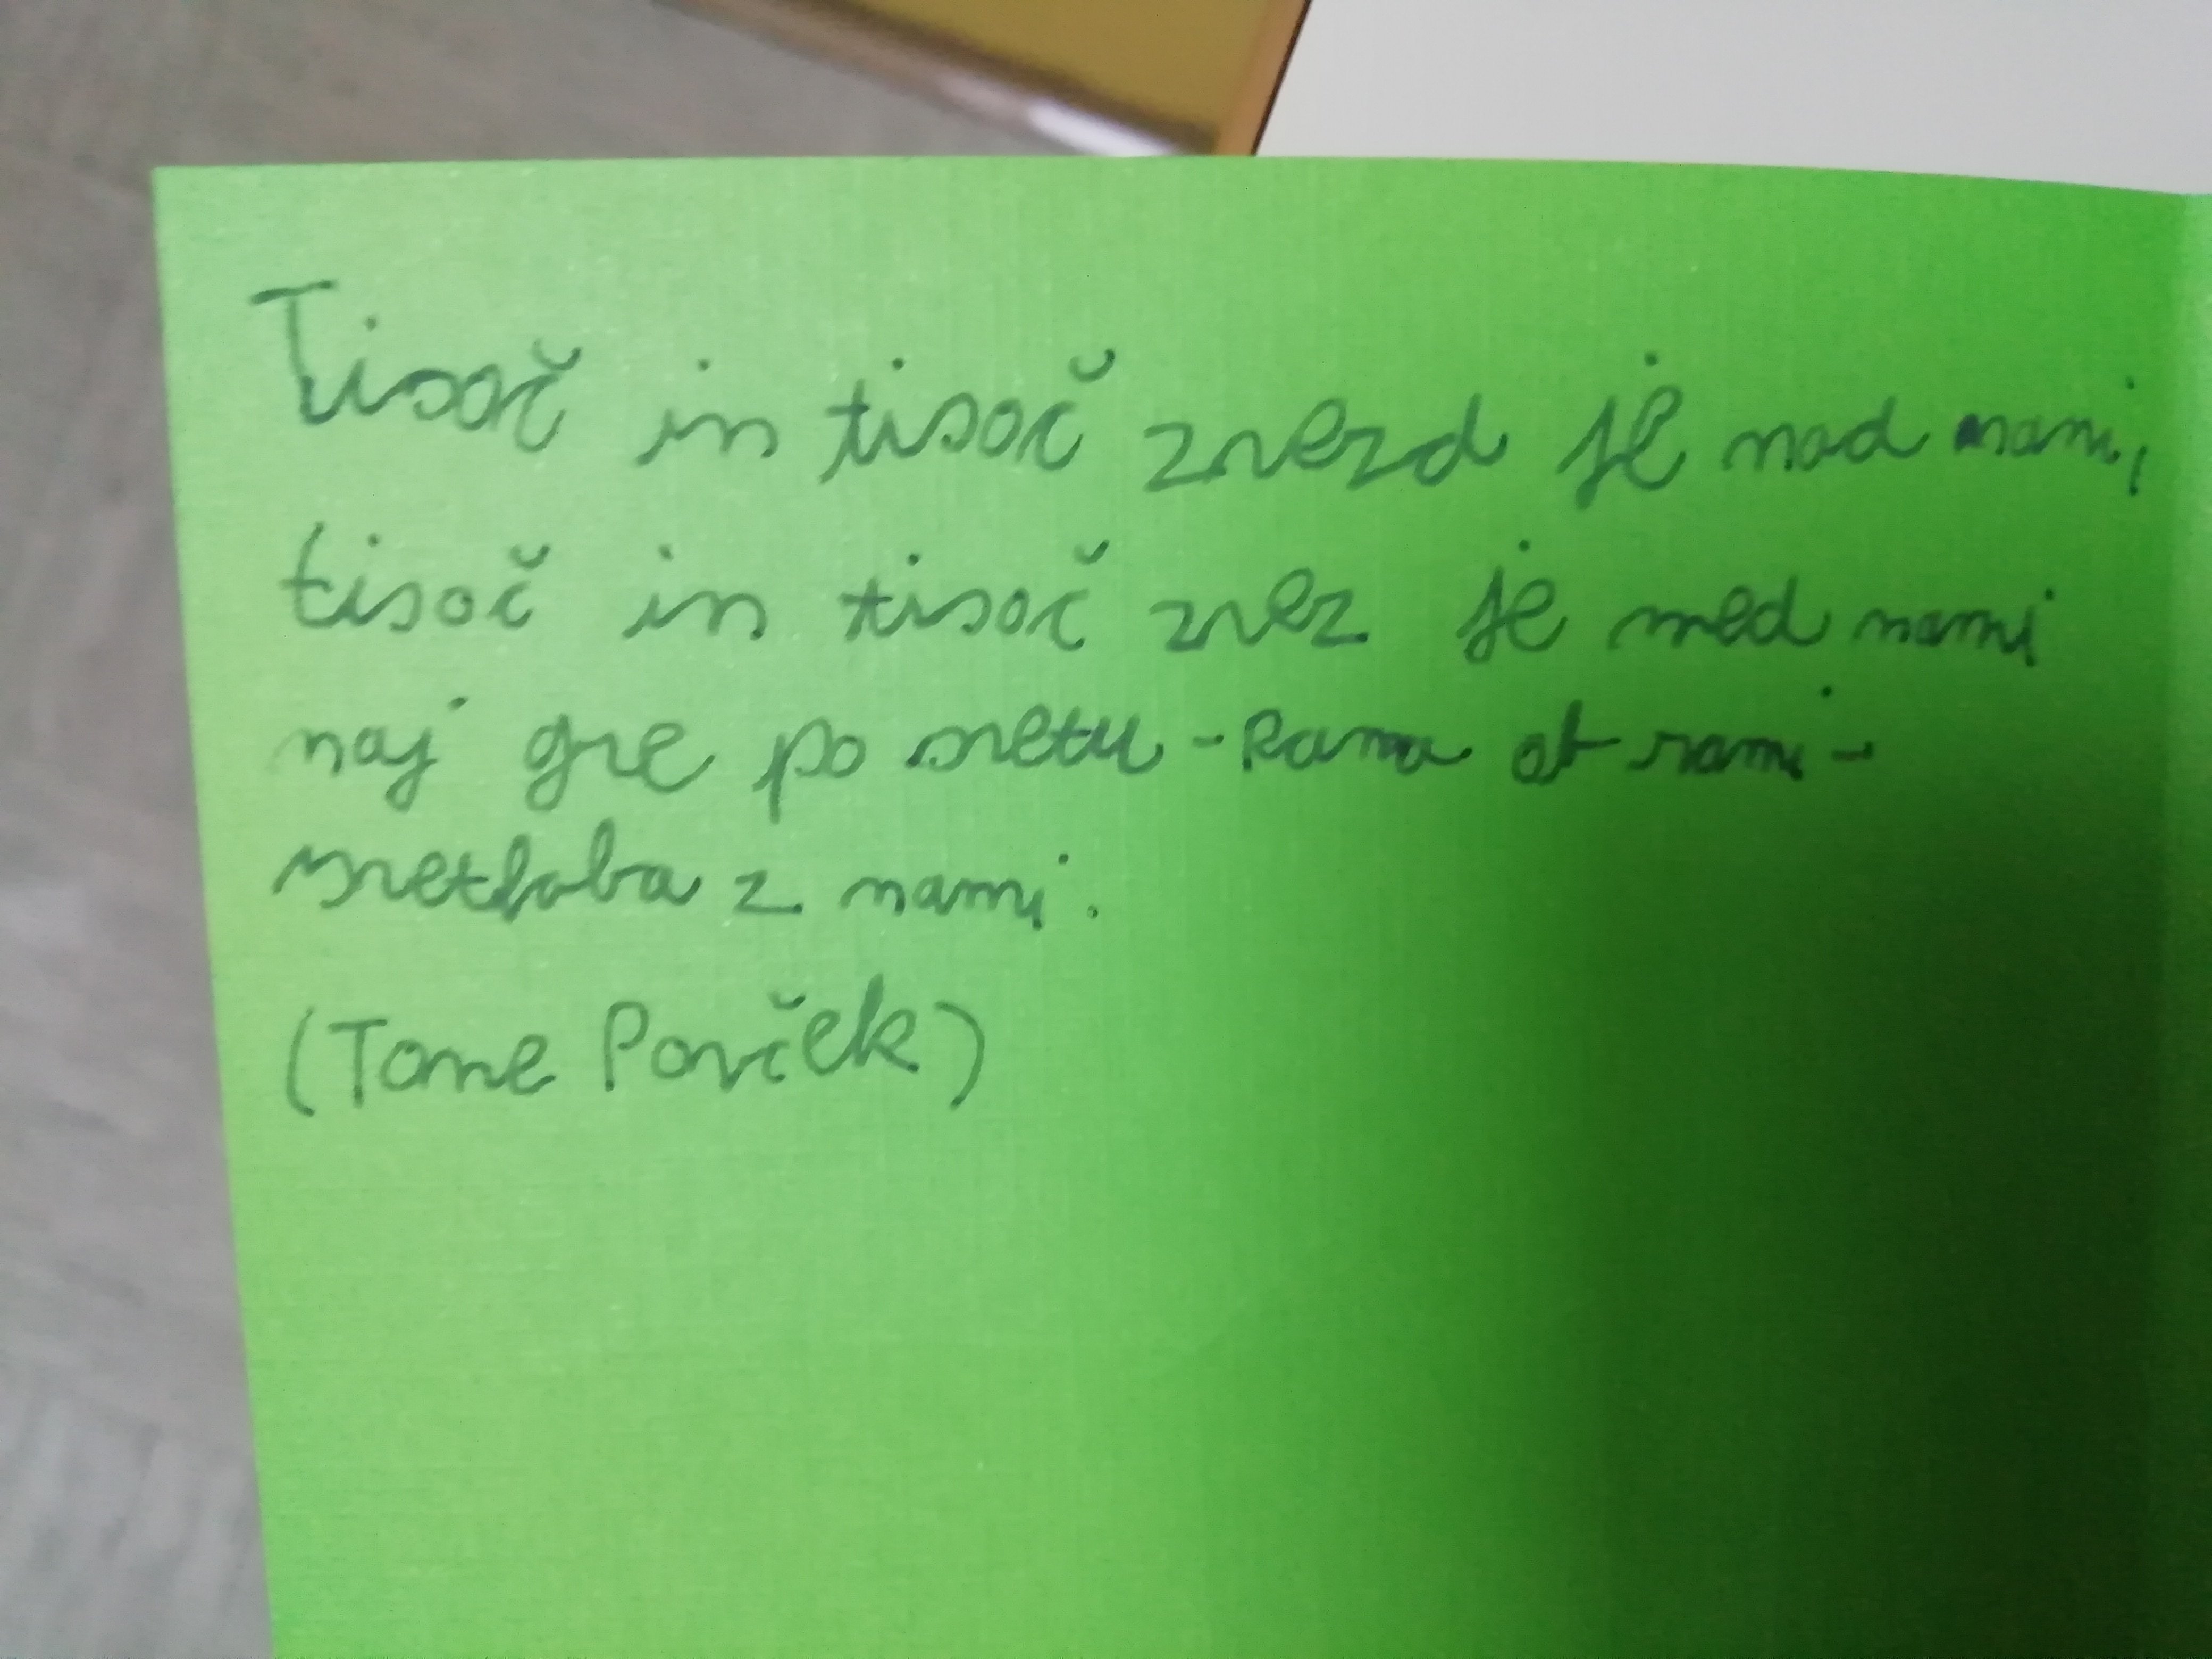 Tisoč in tisoč zvezd je nad nami,
tisoč in tisoč zvez je med nami
naj gre po svetu - Rama ob rami -
svetloba z nami.
(Tone Pavček)